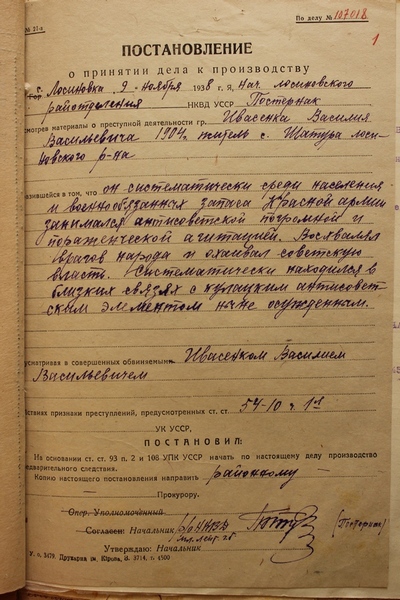 По делу № 107018
№ 31-а
1
ПОСТАНОВЛЕНИЕ
о принятии дела к производству
с. Лосиновка 9 - ноября 1938 г. Я, нач. лосиновского
райотделения НКВД УССР Постернак
смотрев материалы о преступной деятельности гр. Ивасенка Василия
Васильевича 1904 г. житель с. Шатура лоси-
новского р-на
разившейся в том, что он систематически среди населения
и военнообязанных запаса Красной армии
занимался антисоветской погромной и
пораженческой агитацией. Восхвалял
врагов народа и охаивал советскую
власть. Систематически находился в
близких связях с кулацким антисовет-
ским элементом ныне осужденнам.
усматривая в совершенных обвиняемым Ивасенком Василием
Васильевичем
йствиях признаки преступлений, предусмотренных ст. ст. 54-10 ч. 1
УК УССР,
ПОСТАНОВИЛ:
На основании ст. ст. 93 п. 2 и 108 УПК УССР начать по настоящему делу производство
едварительного следствия.
Копию настоящего постановления направить районному
Прокурору.
Опер. Уполномоченный
Согласен: Начальник р/о НКВД
мл. лейт. гб
Утверждаю: Начальник
У. п. 2479. Друкарня ім. Кірова, б. 3714, т. 4500